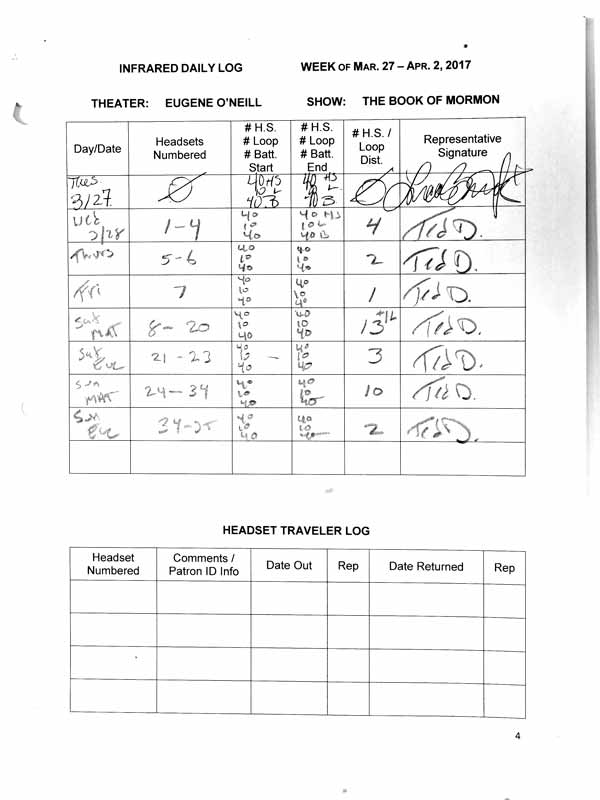 INFRARED DAILY LOG WEEK OF MAR. 27 – APR. 2, 2017
THEATER: EUGENE O'NEILL SHOW: THE BOOK OF MORMON
Day/Date Headsets Numbered # H.S. # Loop # Batt. Start # H.S. # Loop # Batt. End # H.S. / Loop Dist. Representative Signature
Tues 3/27 Ø 40 HS 10 L 40 B 40 HS 10 L 40 B Ø
Wed 3/28 1-4 40 10 40 40 HS 10 L 40 B 4 Ted D.
Thurs 5-6 40 10 40 40 10 40 2 Ted D.
Fri 7 40 10 40 40 10 40 1 Ted D.
Sat MAT 8-20 40 10 40 40 10 40 13 +1L Ted D.
Sat Eve 21-23 40 10 — 40 40 10 40 3 Ted D.
Sun MAT 24-34 40 10 40 40 10 40 10 Ted D.
Sun Eve 34-35 40 10 40 40 10 40 2 Ted D.
HEADSET TRAVELER LOG
Headset Numbered Comments / Patron ID Info Date Out Rep Date Returned Rep
4